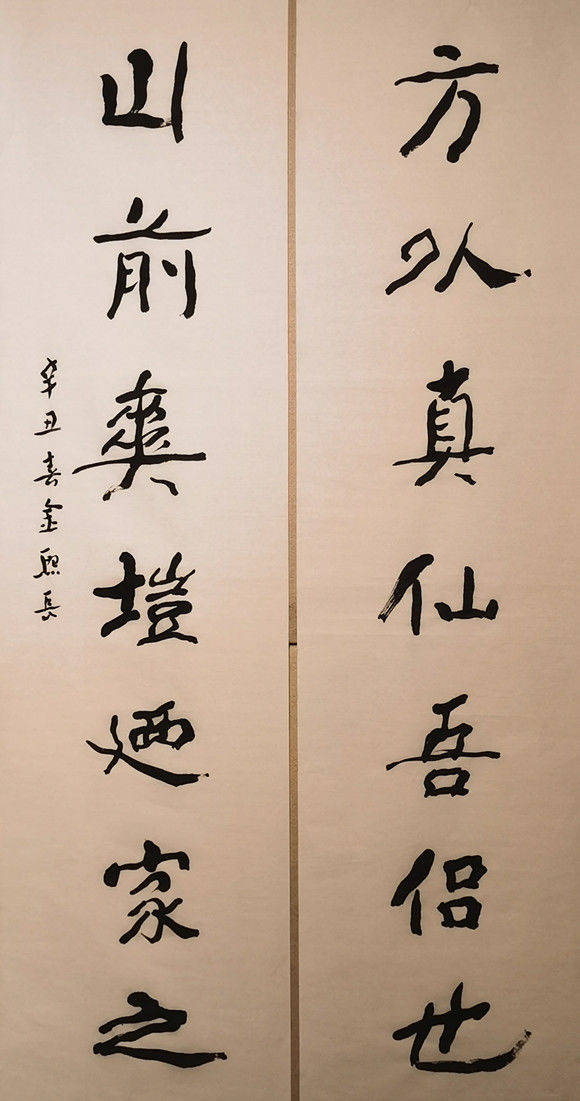 方外真仙吾侣也
山前爽塏迺家之
辛丑春金熙長